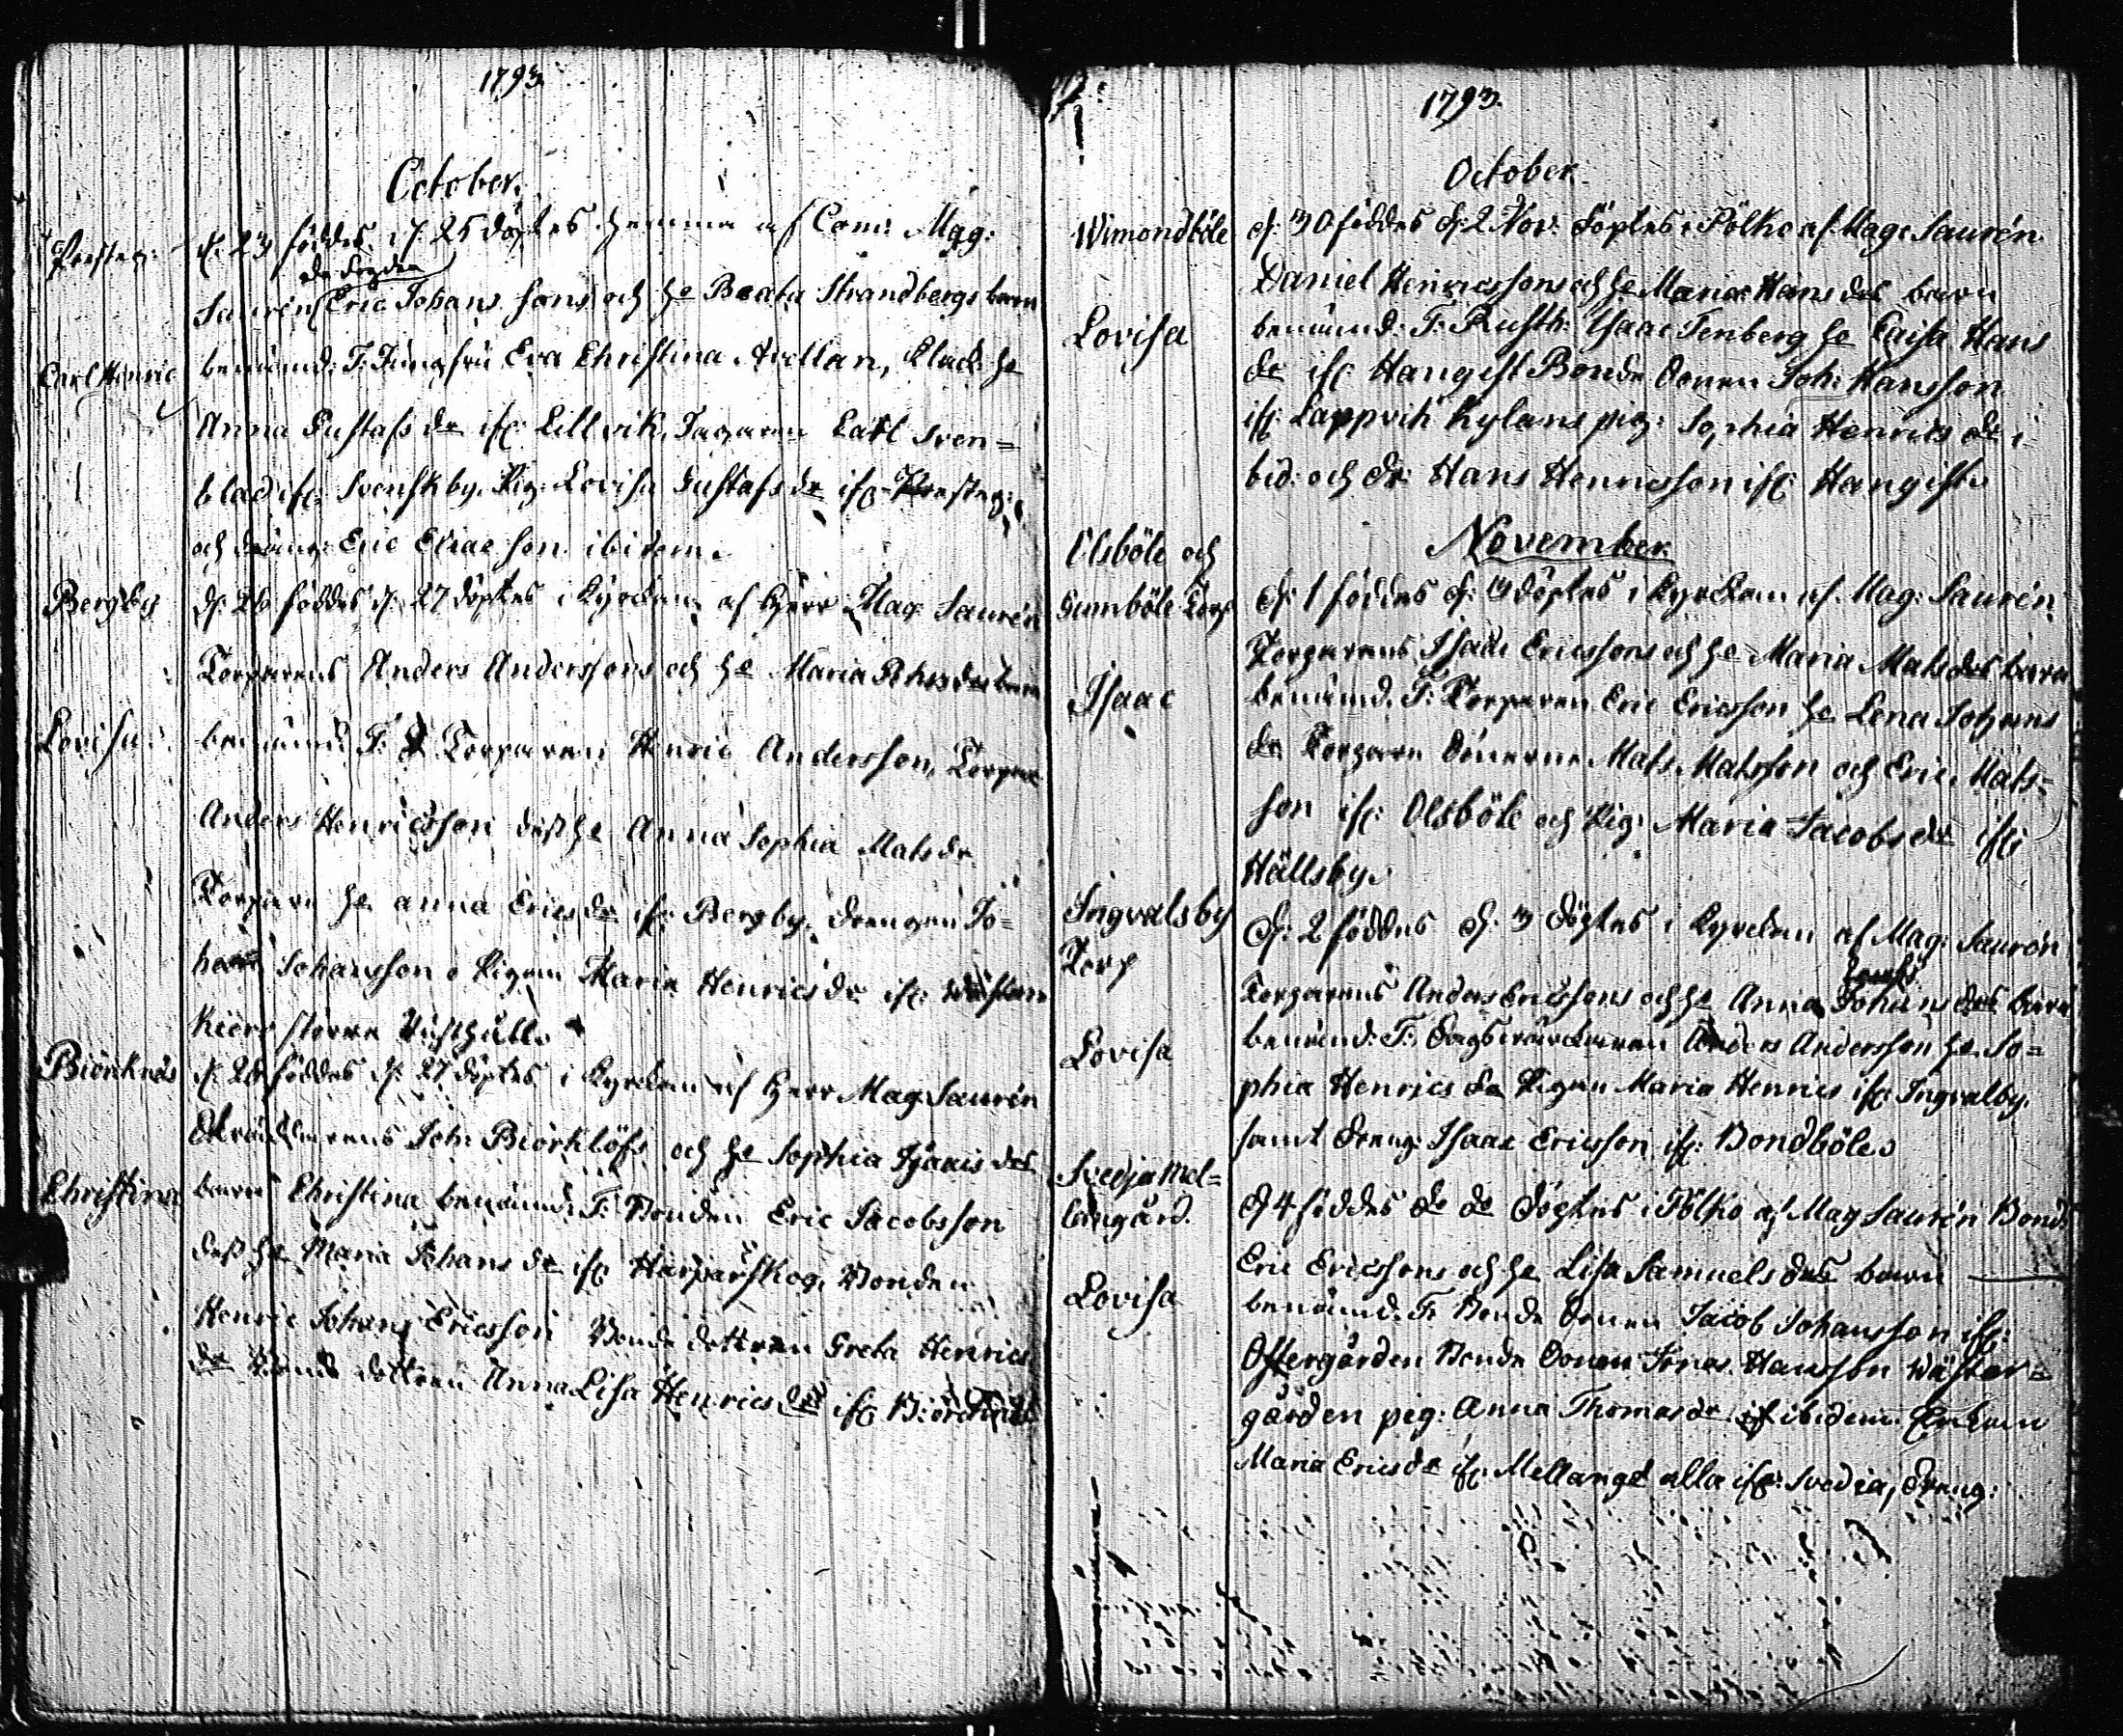 1793.
October.
Presteg:
d: 23 föddes d: 25 döptes hemma af Com: Mag:
Saurén Eric Johans sons och h:e Beata Strandbergs barn
Carl Henric
benämnd: F: Jungfru Eva Christina Avellan, h:e
Anna Gustafs dr ifr: Lillvik, Carl Sven=
blad ifr: Svenskby. Pig: Lovisa Gustafs dr ifr: Presteg:
och dräng: Eric Eliae son ibidem.
Bergby
d: 26 föddes d: 27 döptes i Kyrckan af Herr Mag: Saurén
Torparens Anders Anderssons och h:e Maria barn
Lovisa
benämnd: F: Torparen Henric Andersson, Torpar
Anders Henricsson dess h:e Anna Sophia Mats dr
Torpare h:e Anna Erics dr ifr: Bergby. drengen Jo=
han Johansson o Pigan Maria Henrics dr ifr: Westan
kierr större Rusthåll.
Biörknäs
d: 26 föddes d: 27 döptes i Kyrckan af Herr Mag: Saurén
Joh: Biörklöfs och h:e Sophia drs
Christina
barn Christina benämnd: F: Bonden Eric Jacobsson
dess h:e Maria Johans dr ifr: Harparskog. Bonden
Henric Johans Ericsson Bonde dottren Greta Henrics
dr Bonde dottren Anna Lisa Henrics dr ifr: Biörcknäs
1793.
October.
Wimondböle
d: 30 föddes d: 2 Nov: döptes i Pölko af Mag: Saurén
Daniel Henricssons och h:e Maria Hans drs barn
Lovisa
benämnd: F: Rusth: Isaac Tenberg h:e Caisa Hans
dr ifr: Hangist Bonde Sonen Joh: Hansson
ifr: Lappvik Kylans pig: Sophia Henrics dr i=
bid: och dr: Hans Henricsson ifr: Hangist.
November.
Olsböle och
Gumböle Torp
d: 1 föddes d: 3 döptes i Kyrckan af Mag: Saurén
Torparens Isaac Ericssons och h:e Maria Mats drs barn
Isaac
benämnd: F: Torparen Eric Ericsson h:e Lena Johans
dr Torpare Sönerne Mats Matsson och Eric Mats=
son ifr: Olsböle och Pig: Maria Jacobs dr ifr:
Hällsby.
Ingvalsby
Torp
d: 2 föddes d: 3 döptes i Kyrckan af Mag: Saurén
Torparens Anders Ericssons och h:e Anna Johans drs barn
Lovisa
benämnd: F: Anders Andersson h:e So=
phia Henrics dr Pigan Maria Henrics ifr: Ingvalby.
samt dreng: Isaac Ericsson ifr: Bondböle.
Svedja Mel=
langård.
d 4 föddes do do döptes i Pölko af Mag Saurén Bond:
Eric Ericssons och h:e Lisa Samuels drs barn
Lovisa
benämnd: F: Bonde Sonen Jacob Johansson ifr:
Östergården Bonde Sonen Jonas Hansson Wäster=
gården pig: Anna Thomas dr ibidem Enkan
Maria Erics dr ifr: Mellangd alla ifr: Svedia, dreng: